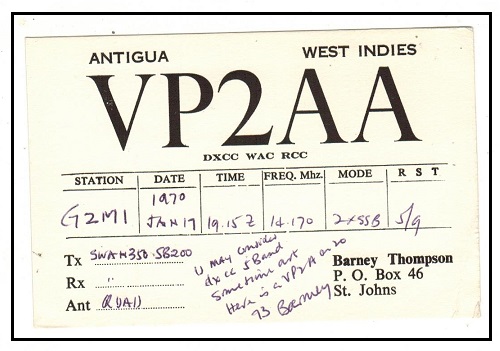 ANTIGUA WEST INDIES
VP2AA
DXCC WAC RCC
STATION DATE TIME FREQ. Mhz. MODE R S T
G2MI 1970 JAN 17 19.15 Z 14.170 2XSSB 5/9
Tx SWAN 350 . SB200
Rx "
Ant QUAD
U may consider
dxcc 5 Band
Sometime
Here is a VP2A on 20
73 Barney
Barney Thompson
P. O. Box 46
St. Johns